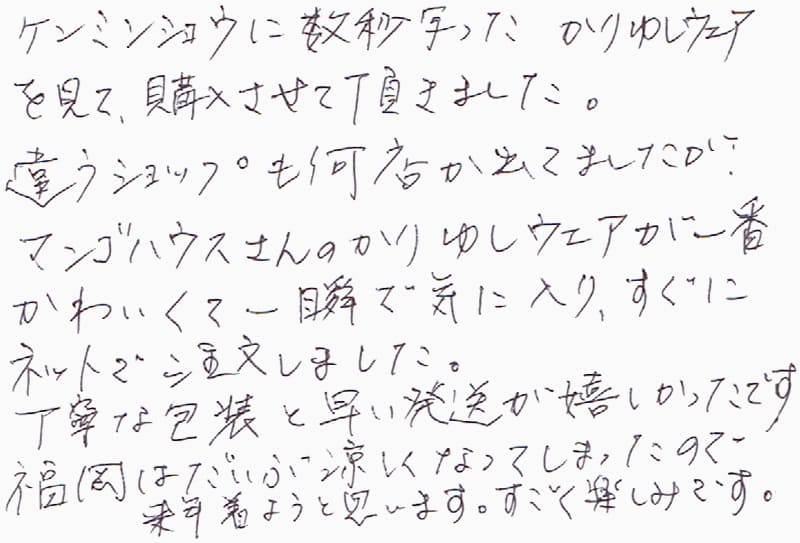 ケンミンショウに数秒写った かりゆしウェア
を見て、購入させて頂きました。
違うショップも何店か出てましたが、
マンゴハウスさんのかりゆしウェアが一番
かわいくて一瞬で気に入り、すぐに
ネットでご注文しました。
丁寧な包装と早い発送が嬉しかったです
福岡はだいぶ涼しくなってしまったので
来年着ようと思います。すごく楽しみです。